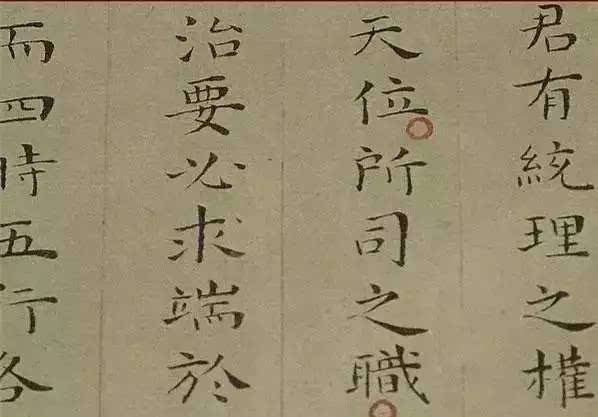 君有統理之權
天位所司之職
治要必求端於
而四時五行各